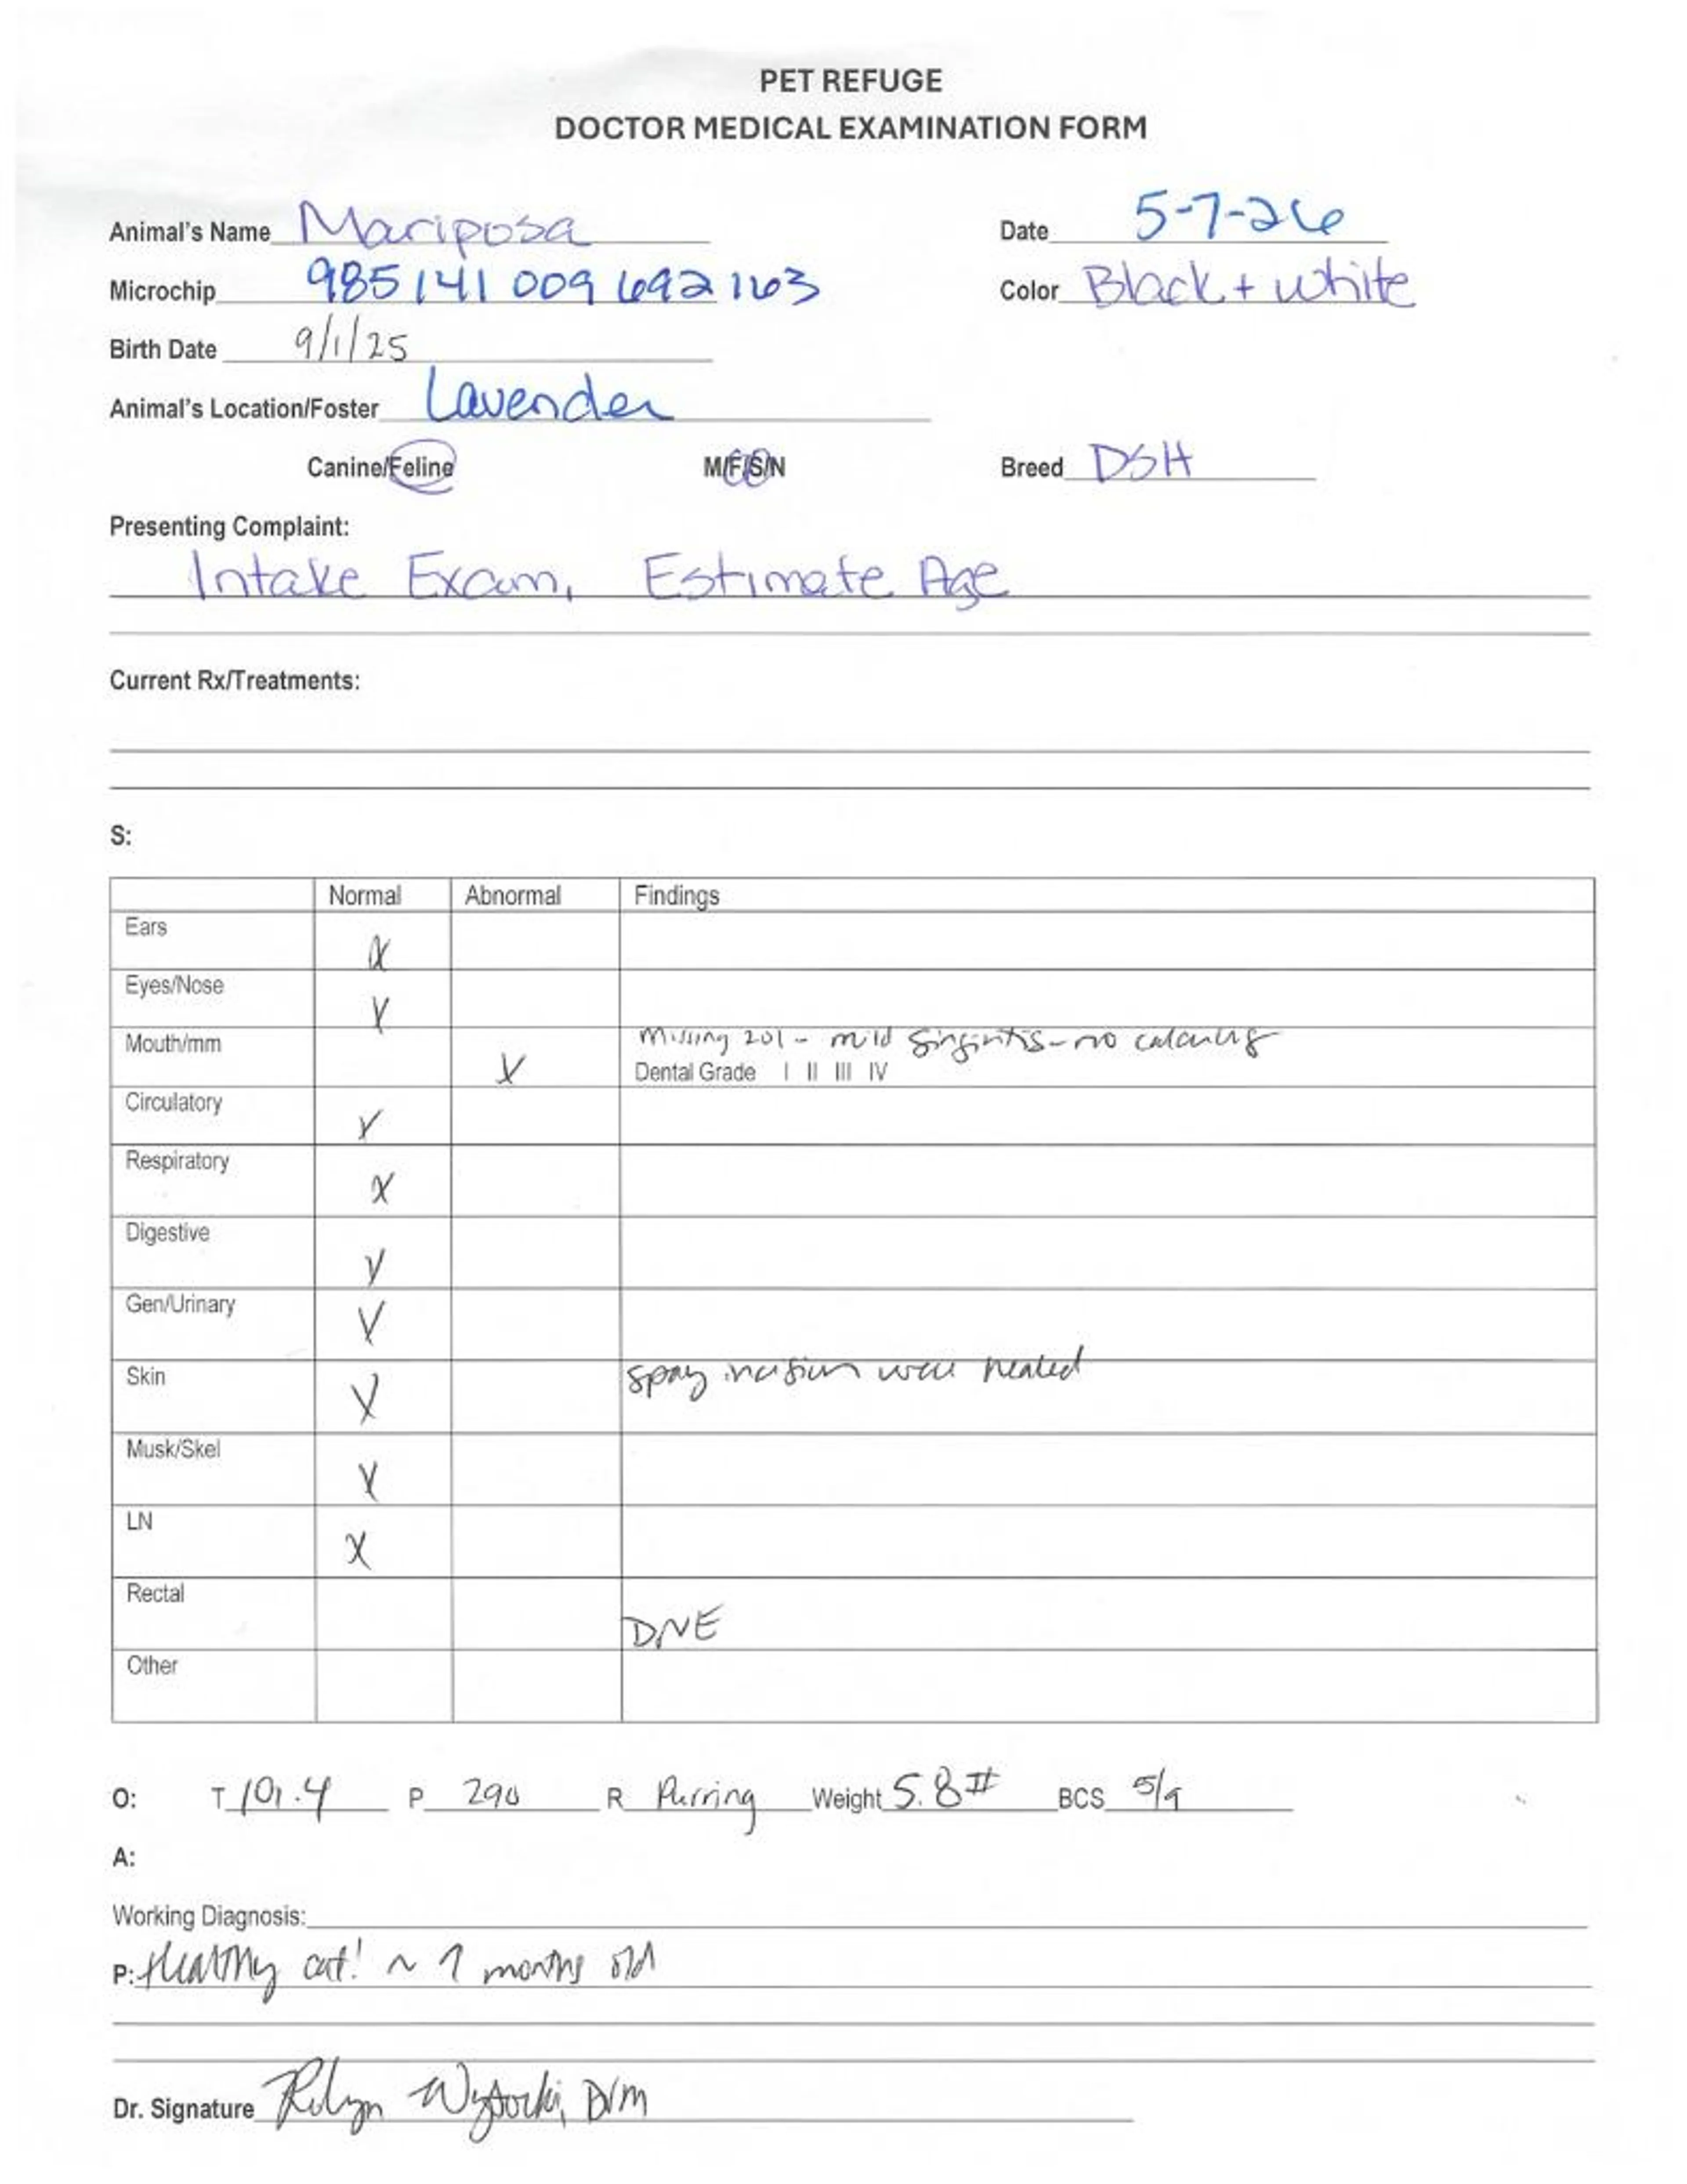 PET REFUGE
DOCTOR MEDICAL EXAMINATION FORM
Animal's Name Mariposa Date 5-7-26
Microchip 985141009692163 Color Black + white
Birth Date 9/1/25
Animal's Location/Foster Lavender
Canine/Feline M/F/S/N Breed DSH
Presenting Complaint:
Intake Exam, Estimate Age
Current Rx/Treatments:
S:
Normal Abnormal Findings
Ears X
Eyes/Nose X
Missing 201 - mild gingivitis - no calculus
Mouth/mm X
Dental Grade I II III IV
Circulatory X
Respiratory X
Digestive X
Gen/Urinary X
Skin X spay incision well healed
Musk/Skel X
LN X
Rectal DNE
Other
O: T 101.4 P 290 R Purring Weight 5.8# BCS 5/9
A:
Working Diagnosis:
P: Healthy cat! ~ months old
Dr. Signature DVM